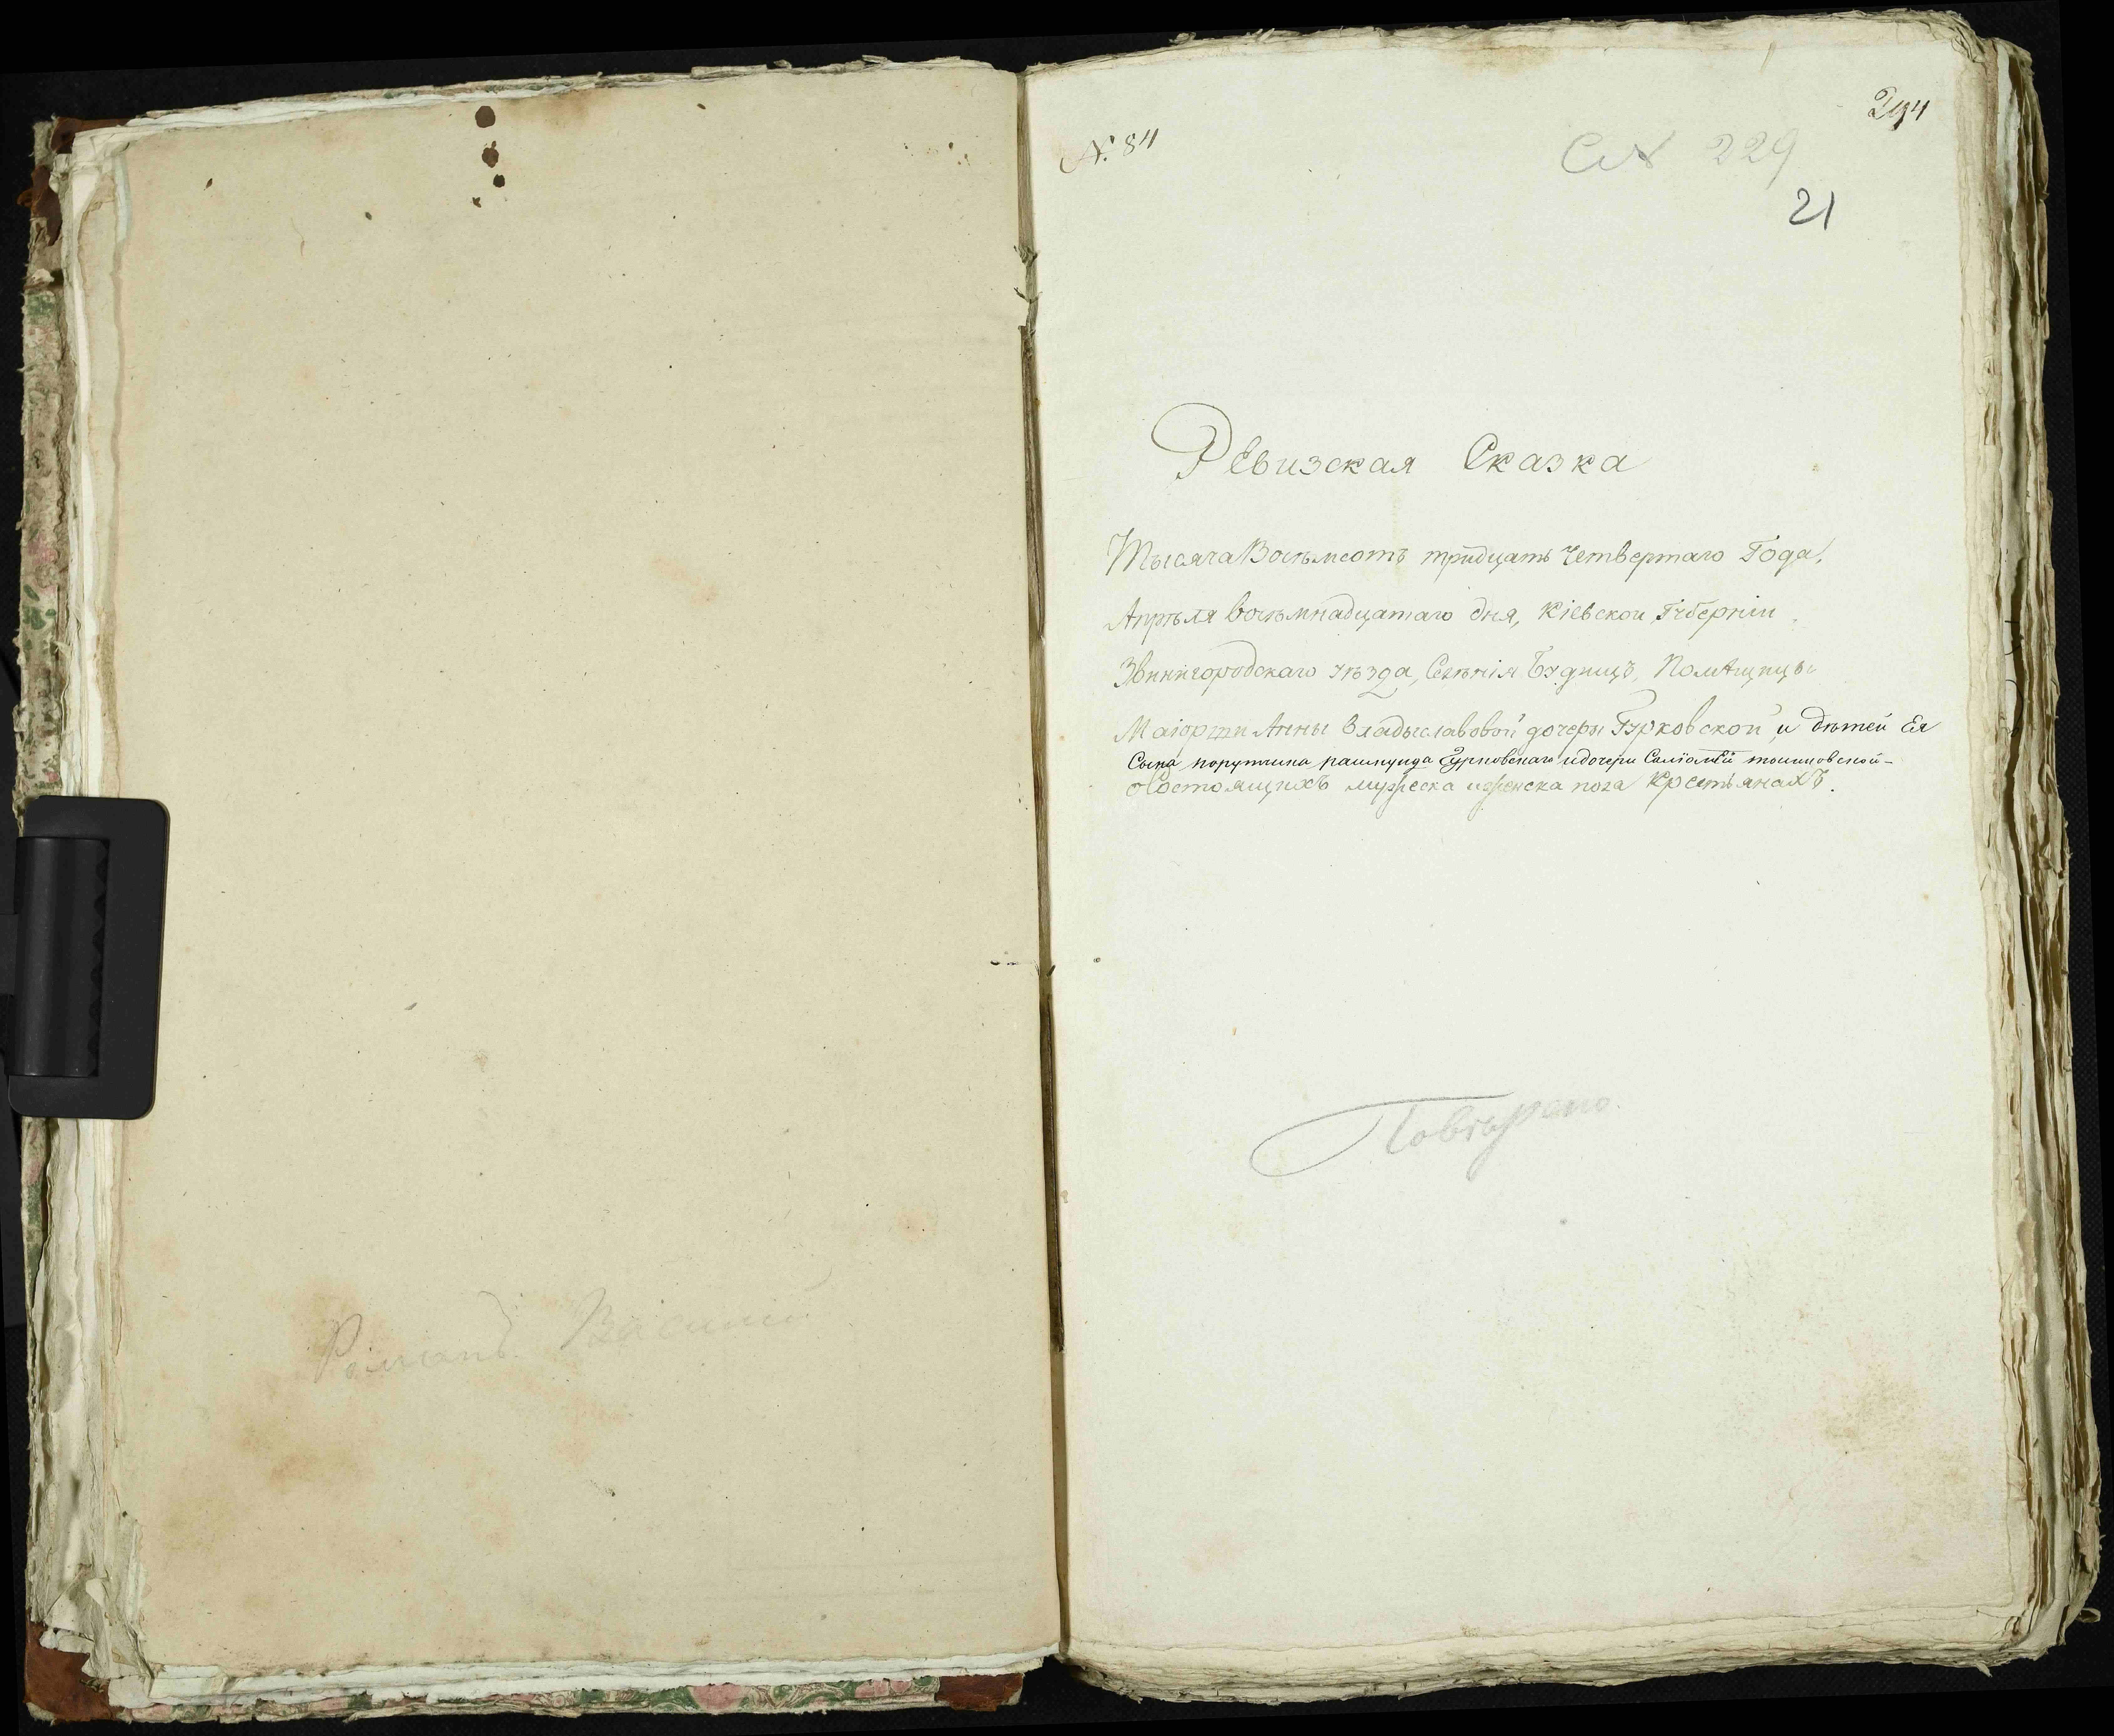 Романъ Василий
№ 84
294
229
21
Ревизская Сказка
Тысяча Восѣмсотъ тридцать Четвертаго Года,
Апрѣля восѣмнадцатаго дня, Кіевской Губерніи
Звинигородскаго уѣзда, Селѣнія Будищъ, Помѣщицы
Маіорши Анны Владыславовой дочери Гурковской и дѣтей Ея
Сына поручика Гурковскаго и дочери
о Состоящихъ мужеска и женска пола Крестьянахъ.
Повѣрено